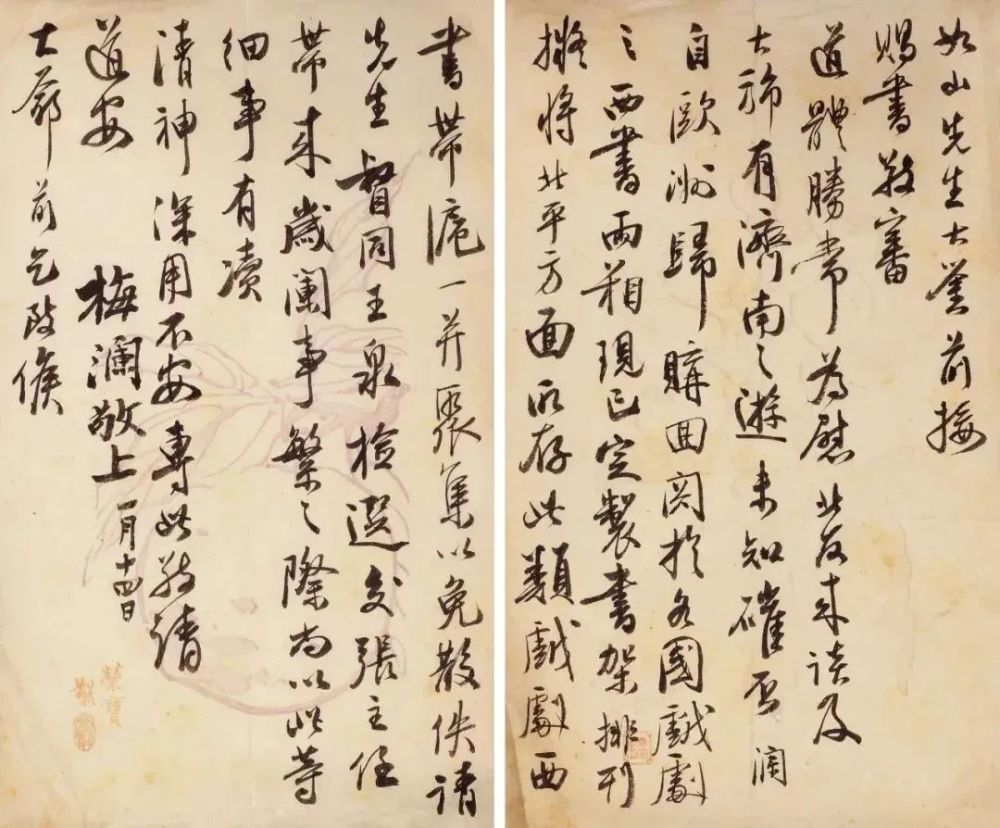 如山先生大鋻前接
賜書敬審
道體勝常為慰北友来談及
大旆有濟南之遊未知確否 瀾
自歐洲歸購回関扵各國戲劇
之西書兩箱現已定製書架排列
擬將北平方面所存此類戲劇西
書帶滬一并聚集以免散佚請
先生督同王泉檢選交張主任
帶来歲闌事繁之際尚以此等
细事有凟
清神深用不安專此敬請
道安 梅瀾敬上 一月十四日
士廓前乞致候
榮寶